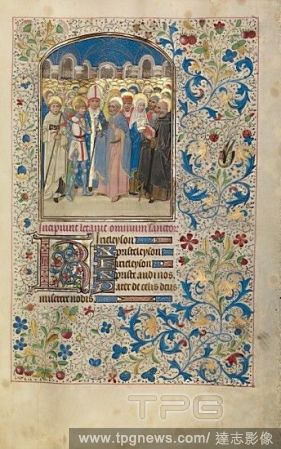 Incipiunt letanie omnium sanctor
Kirieleyson
Xpisteleyson
Kirieleyson
Xpiste audi nos
Pater de celis deus
miserere nobis
TPG
www.tpgnews.com/ 達志影像